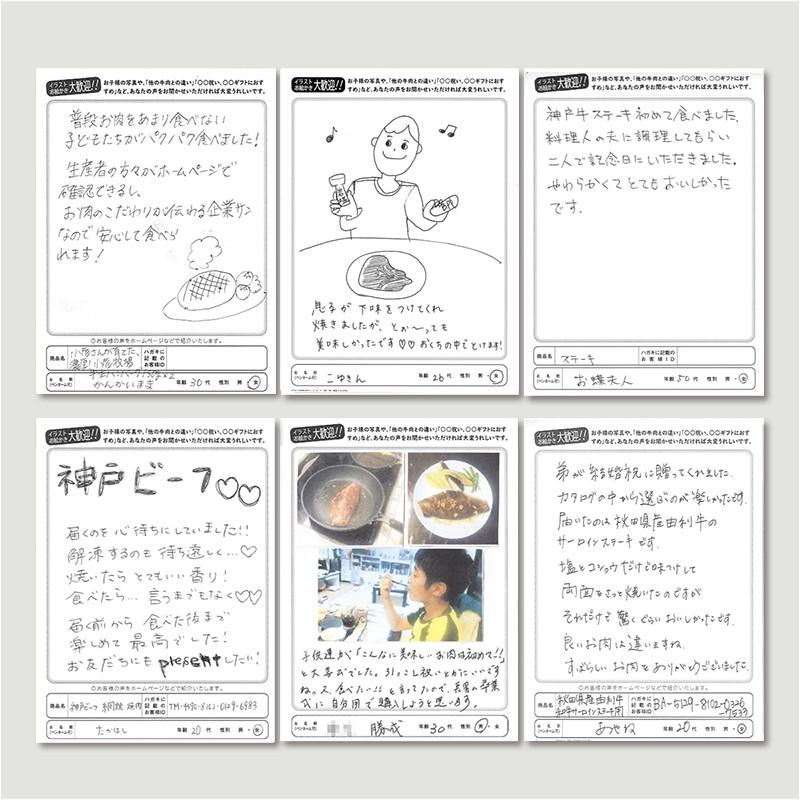 イラスト お絵かき 大歓迎!!
お子様の写真や、「他の牛肉との違い」「○○祝い、○○ギフトにおす
すめ」など、あなたの声をお聞かせいただければ大変うれしいです。
普段お肉をあまり食べない
子どもたちがパクパク食べました!
生産者の方々がホームページで
確認できるし、
お肉のこだわりが伝わる企業サン
なので安心して食べら
れます!
◎お客様の声をホームページなどで紹介いたします。
商品名 小形さんが育てた、
濃厚!小形牧場
ハガキに
記載の
お客様ID
お名前
(ペンネーム可) かんかいまき 年齢 30代 性別 男・女
イラスト お絵かき 大歓迎!!
お子様の写真や、「他の牛肉との違い」「○○祝い、○○ギフトにおす
すめ」など、あなたの声をお聞かせいただければ大変うれしいです。
息子が下味をつけてくれ
焼きましたが、とぉ〜っても
美味しかったです♡♡おくちの中でとけます!
お名前
(ペンネーム可) こゆきん 年齢 26代 性別 男・女
イラスト お絵かき 大歓迎!!
お子様の写真や、「他の牛肉との違い」「○○祝い、○○ギフトにおす
すめ」など、あなたの声をお聞かせいただければ大変うれしいです。
神戸牛ステーキ初めて食べました。
料理人の夫に調理してもらい
二人で記念日にいただきました。
やわらかくてとてもおいしかった
です。
◎お客様の声をホームページなどで紹介いたします。
商品名 ステーキ ハガキに
記載の
お客様ID
お名前
(ペンネーム可) お蝶夫人 年齢 50代 性別 男・女
イラスト お絵かき 大歓迎!!
お子様の写真や、「他の牛肉との違い」「○○祝い、○○ギフトにおす
すめ」など、あなたの声をお聞かせいただければ大変うれしいです。
神戸ビーフ♡♡
届くのを心待ちにしていました!!
解凍するのも待ち遠しく…♡
焼いたらとてもいい香り!
食べたら…言うまでもなく♡♡
届く前から食べた後まで
楽しめて最高でした!
お友だちにもpresentしたい!
◎お客様の声をホームページなどで紹介いたします。
商品名 神戸ビーフ 網焼 焼肉 ハガキに
記載の
お客様ID TM-4490-8102-0129-6983
お名前
(ペンネーム可) たかはし 年齢 20代 性別 男・女
イラスト お絵かき 大歓迎!!
お子様の写真や、「他の牛肉との違い」「○○祝い、○○ギフトにおす
すめ」など、あなたの声をお聞かせいただければ大変うれしいです。
子供達が「こんなに美味しいお肉は初めて!!」
と大喜びでした。引っこし祝いとかにいいです
ねっ又、食べたい!!と言ってたので、長男の卒業
式に自分用で購入しようと思います。
お名前
(ペンネーム可) 勝成 年齢 30代 性別 男・女
イラスト お絵かき 大歓迎!!
お子様の写真や、「他の牛肉との違い」「○○祝い、○○ギフトにおす
すめ」など、あなたの声をお聞かせいただければ大変うれしいです。
弟が結婚祝に贈ってくれました。
カタログの中から選ぶのが楽しかったです。
届いたのは秋田県産由利牛の
サーロインステーキです。
塩とコショウだけで味つけして
両面をさっと焼いたのですが
それだけで驚くぐらいおいしかったです。
良いお肉は違いますね。
すばらしいお肉をありがとうございました。
◎お客様の声をホームページなどで紹介いたします。
商品名 秋田県産由利牛
和牛サーロインステーキ用
ハガキに
記載の
お客様ID BA-5129-8102-0326
-7533
お名前
(ペンネーム可) あやね 年齢 20代 性別 男・女